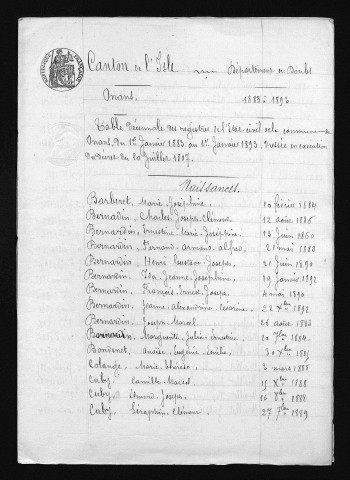 Canton de l'Isle Département du Doubs
Onans. 1883 à 1892
Table Décennale des registres de l'état civil de la commune de
Onans, du 1er Janvier 1883 au 1er Janvier 1893. Dressée en exécution
du Décret du 20 Juillet 1807.
Naissances.
Barberet, Marie Joséphine. 10 février 1884
Bernardin, Charles Joseph Clément. 12 août 1886
Bernardin, Ernestine Marie Joséphine. 13 Juin 1860
Bernardin, Fernand Armand Alfred. 21 mai 1883
Bernardin. Henri Joseph. 21 Juin 1890
Bernardin. Ida Jeanne Joséphine. 19 Janvier 1892
Bernardin. François Ernest Joseph. 4 mai 1890
Bernardin, Jeanne Alexandrine Césarine. 22 Xbre 1892
Bernardin, Joseph Marcel. 26 août 1883
Bernardin, Marguerite Julie Ernestine. 20 7bre 1884.
Eugénie Emilie. 30 Xbre 1885
Colange, Marie Thérèse. 3 mars 1888
Cuby, Camille Marcel. 15 Xbre 1888
Cuby, Edmond Joseph. 16 8bre 1888
Cuby, Séraphin Clément. 27 7bre 1889